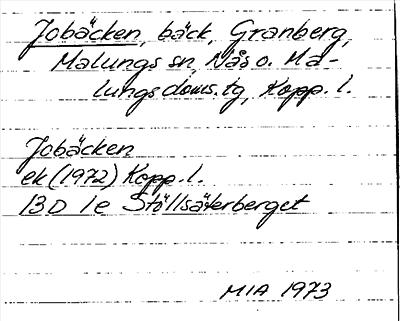 Jobäcken, bäck, Granberg,
Malungs sn, Nås o. Ma-
lungs doms. tg, Kopp. l.
Jobäcken
ek (1972) Kopp. l.
13D 1e Stöllsäterberget
MIA 1973